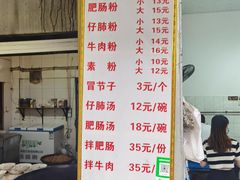 肥肠粉 小 13元
大 15元
仔肺粉 小 13元
大 16元
牛肉粉 小 13元
大 16元
素粉 小 10元
大 12元
冒节子 3元/个
仔肺汤 12元/碗
肥肠汤 18元/碗
拌肥肠 35元/份
拌牛肉 35元/